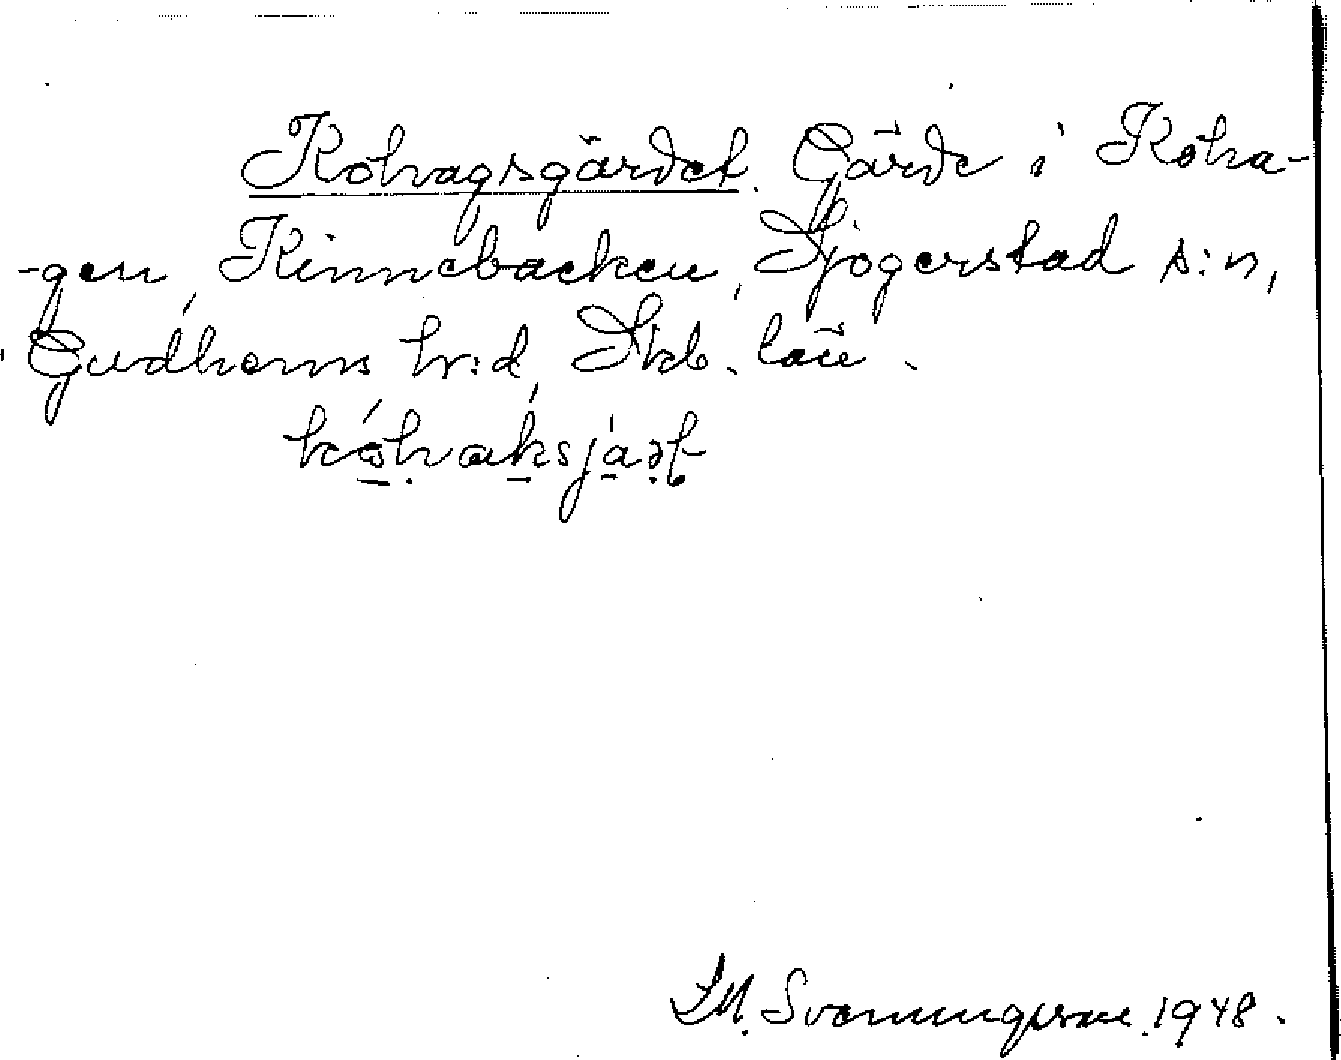 Kohagsgärdet. Gärde i Koha-
-gen, Kinnebacken, Sjogerstad s:n,
Gudhems hr:d, Skb. län.
kóhaksjàɚt
Svenungsson. 1948.